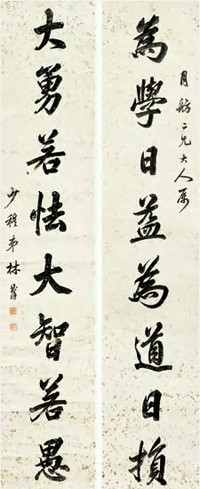 月舫二兄大人属
為學日益為道日損
大勇若怯大智若愚
少穆弟林